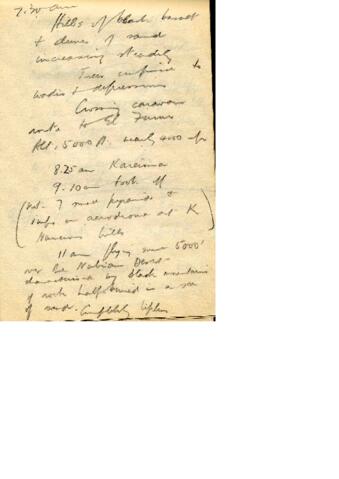 7.30 am
Hills of black basalt
& dunes of sand
increasing steadily
Trees confined to
wadies & depressions
Crossing caravan
route to El
Alt. 5000 ft. nearly 4000 up
8.25 am Kareima
9.10 am took off
7 small pyramids &
on aerodrome at K
hills
11 am flying some 5000'
over the Nubian Desert
characterised by black mountains
of rock half buried in a sea
of sand. Completely lifeless